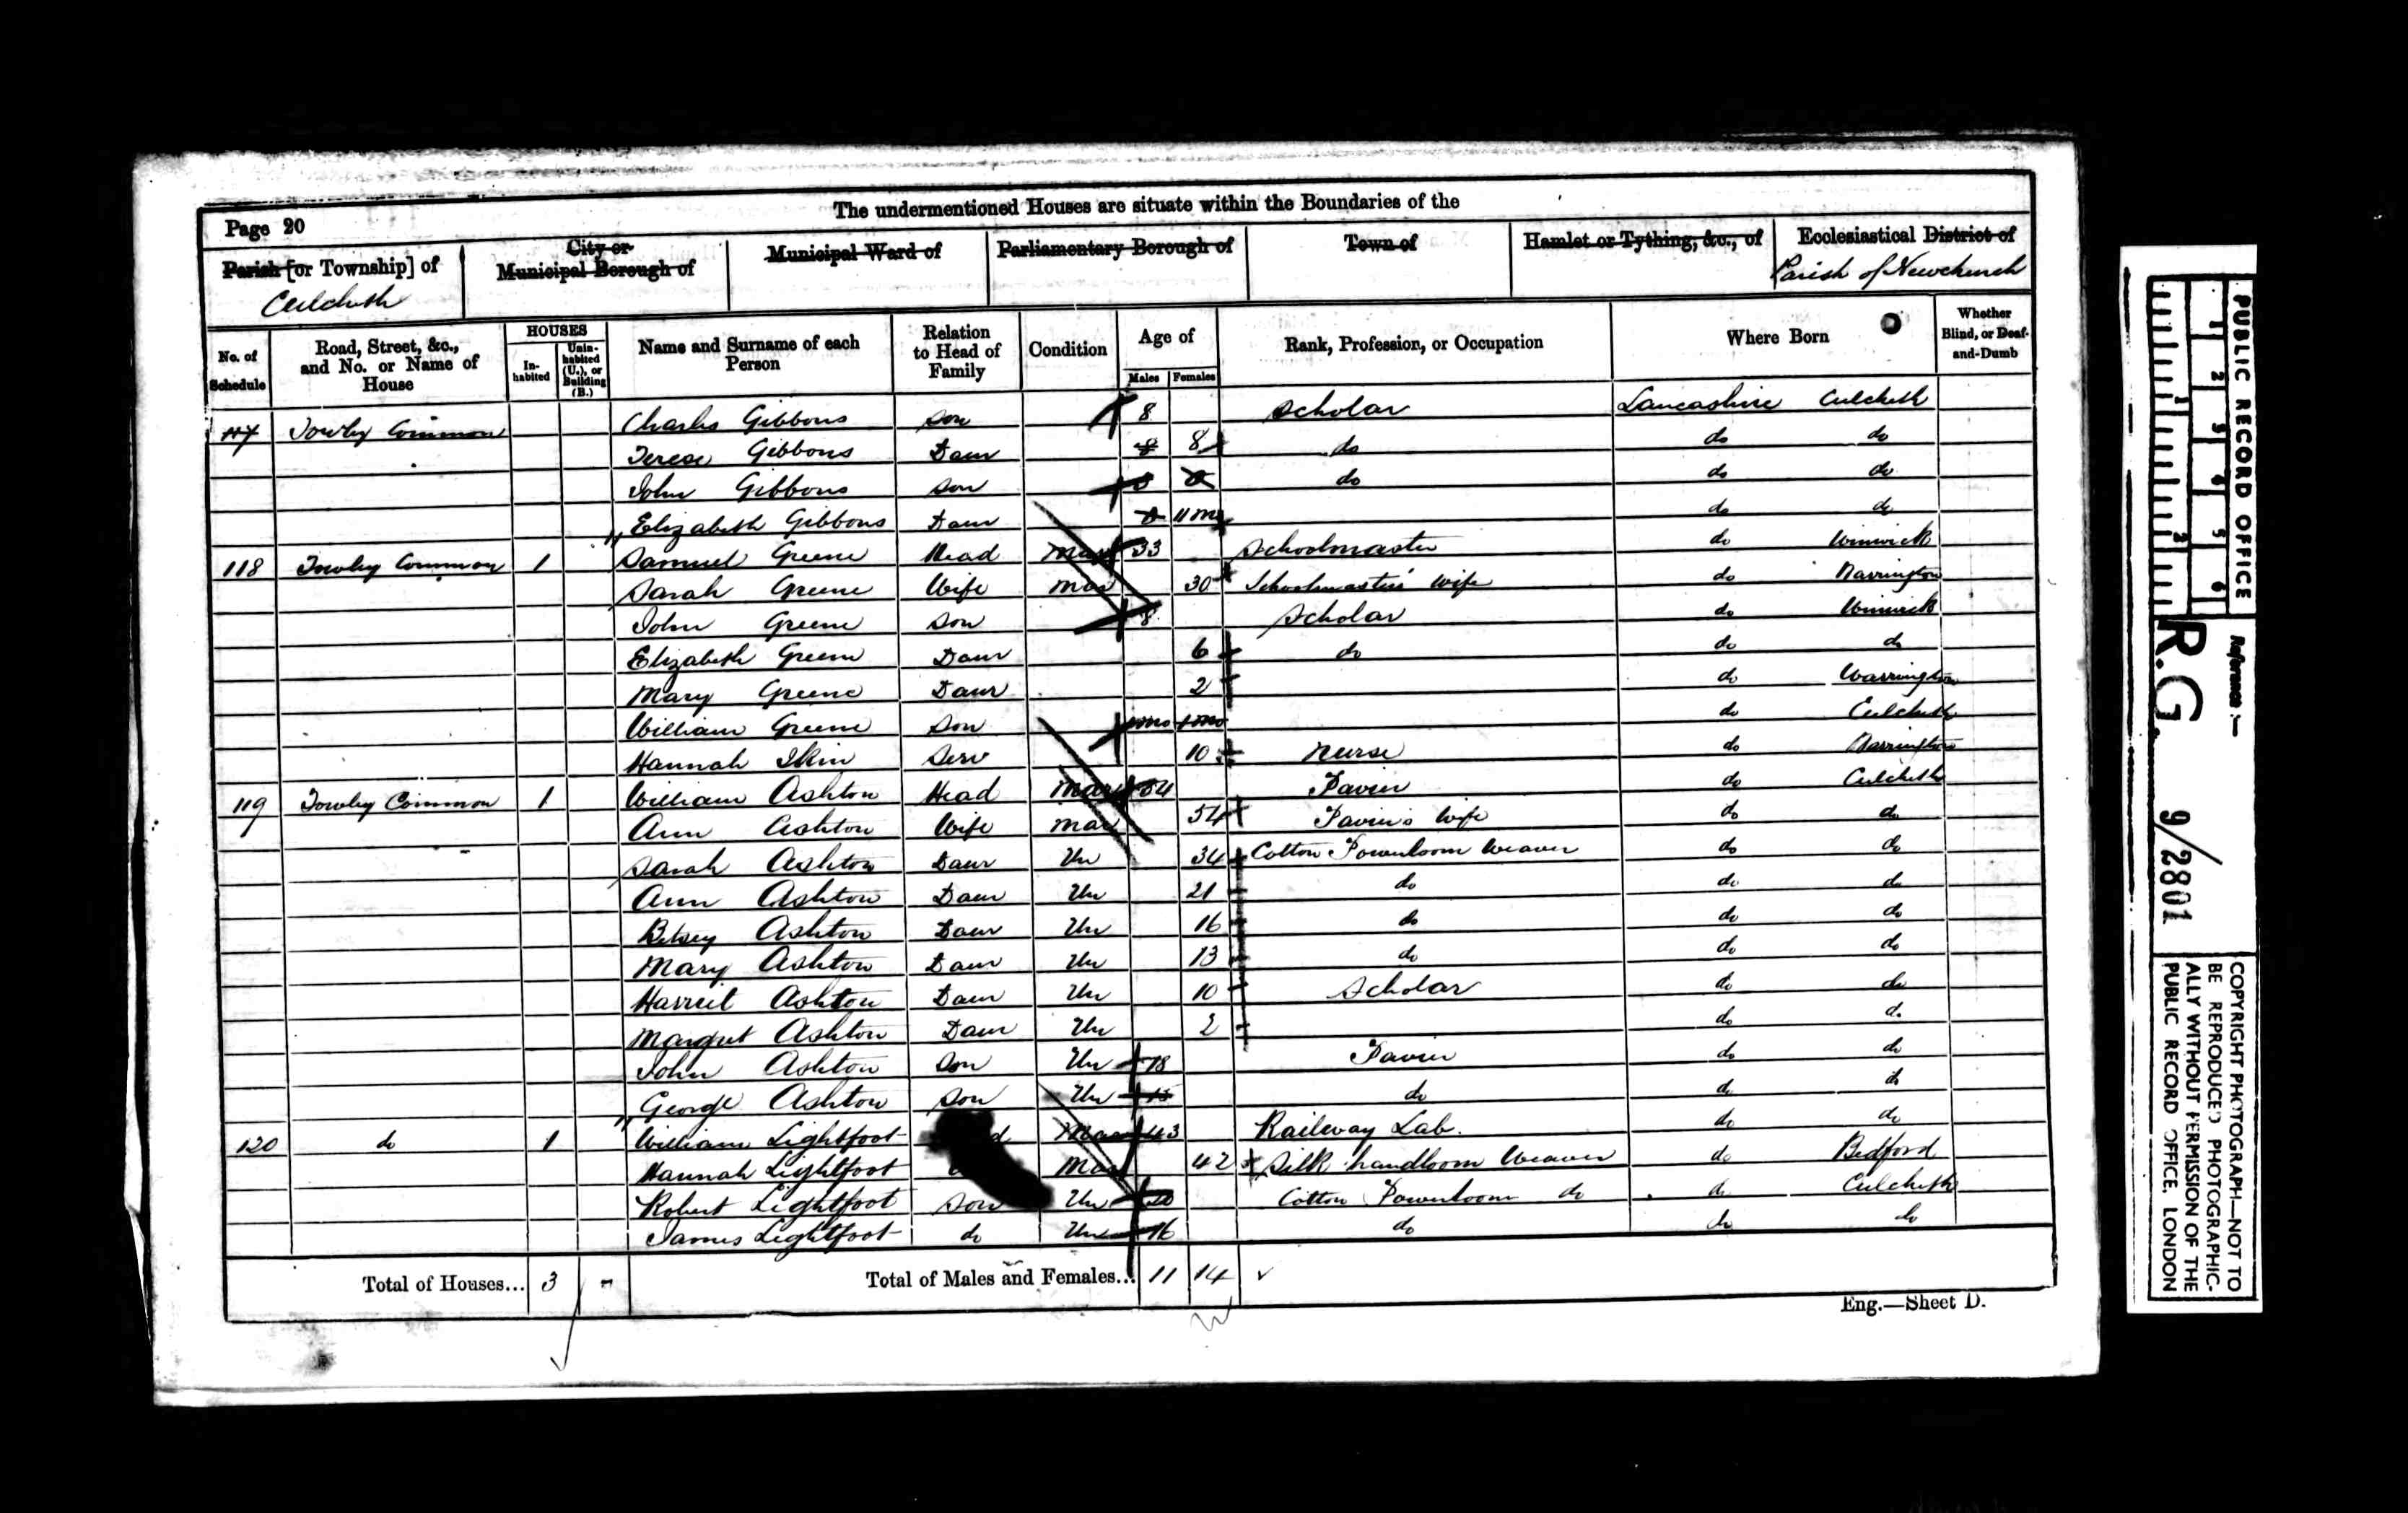 The undermentioned Houses are situate within the Boundaries of the
Page 20
Parish [or Township] of
Culcheth
City or
Municipal Borough of
Municipal Ward of
Parliamentary Borough of
Town of
Hamlet or Tything, &c., of
Ecclesiastical District of
Parish of Newchurch
No. of Schedule
Road, Street, &c., and No. or Name of House
HOUSES
In-habited
Unin-habited (U.), or Building (B.)
Name and Surname of each Person
Relation to Head of Family
Condition
Age of
Males
Females
Rank, Profession, or Occupation
Where Born
Whether Blind, or Deaf-and-Dumb
117 Towley Common Charles Gibbons Son 8 Scholar Lancashire Culcheth
Gibbons Daur 8 do do do
John Gibbons Son do do do
Elizabeth Gibbons Daur 11 m do do
118 Towley Common 1 Samuel Greene Head Mar 33 Schoolmaster do Winwick
Sarah Greene Wife Mar 30 Schoolmasters wife do Warrington
John Greene Son 8 Scholar do Winwick
Elizabeth Greene Daur 6 do do do
Mary Greene Daur 2 do Warrington
William Greene Son do Culcheth
Hannah Serv 10 Nurse do Warrington
119 Towley Common 1 William Ashton Head Mar 54 Pavier do Culcheth
Ann Ashton Wife Mar 54 Pavier's wife do do
Sarah Ashton Daur Un 34 Cotton Powerloom Weaver do do
Ann Ashton Daur Un 21 do do do
Betsey Ashton Daur Un 16 do do do
Mary Ashton Daur Un 13 do do do
Harriet Ashton Daur Un 10 Scholar do do
Margret Ashton Daur Un 2 do do
John Ashton Son Un 18 Pavier do do
George Ashton Son Un do do do
120 do 1 William Lightfoot Mar 43 Railway Lab. do do
Hannah Lightfoot Mar 42 Silk handloom Weaver do Bedford
Robert Lightfoot Son Un 20 Cotton Powerloom do do Culcheth
James Lightfoot do Un 16 do do do
Total of Houses... 3
Total of Males and Females... 11 14
Eng.—Sheet D.
PUBLIC RECORD OFFICE
1 2 3 4 5 6
1 2
Reference :—
R.G. 9/2801
COPYRIGHT PHOTOGRAPH—NOT TO
BE REPRODUCED PHOTOGRAPHIC-
ALLY WITHOUT PERMISSION OF THE
PUBLIC RECORD OFFICE, LONDON